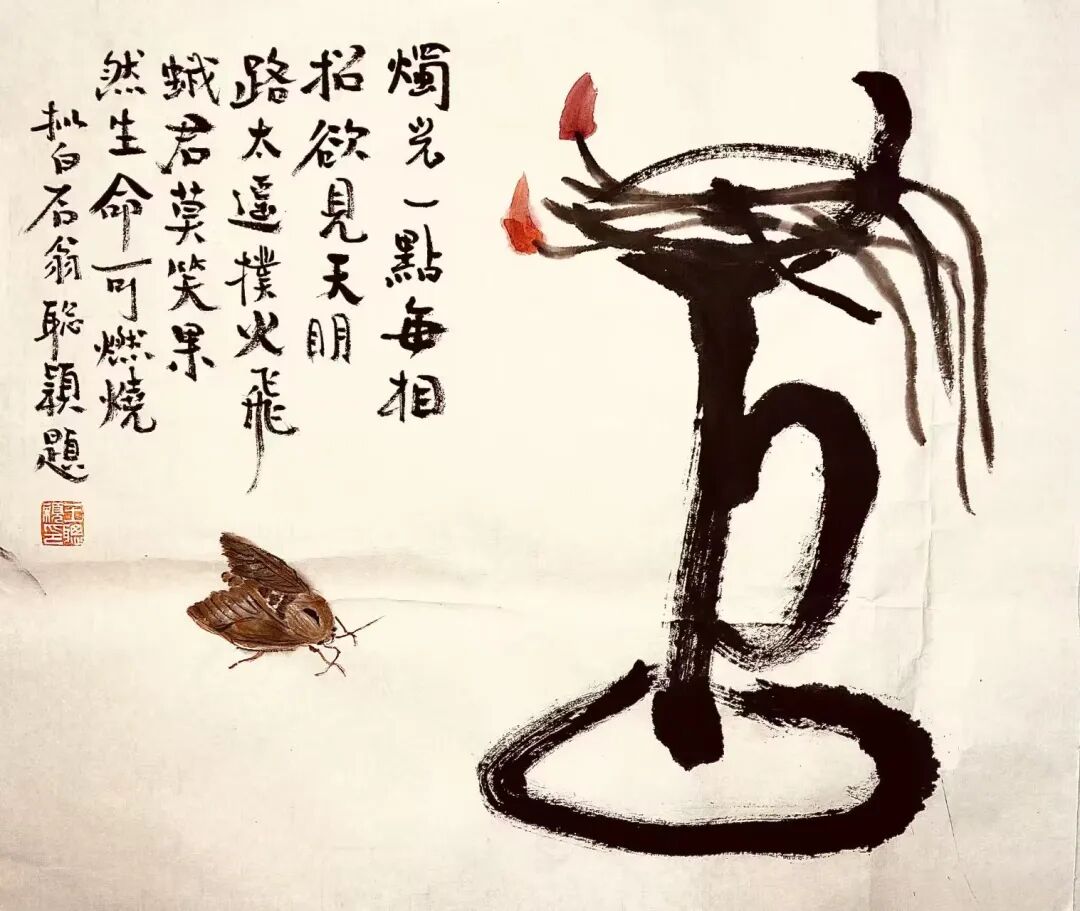 燭光一點每相
招欲見天明
路太遥撲火飛
蛾君莫笑果
然生命可燃燒
拟白石翁聪穎題
王聰穎印